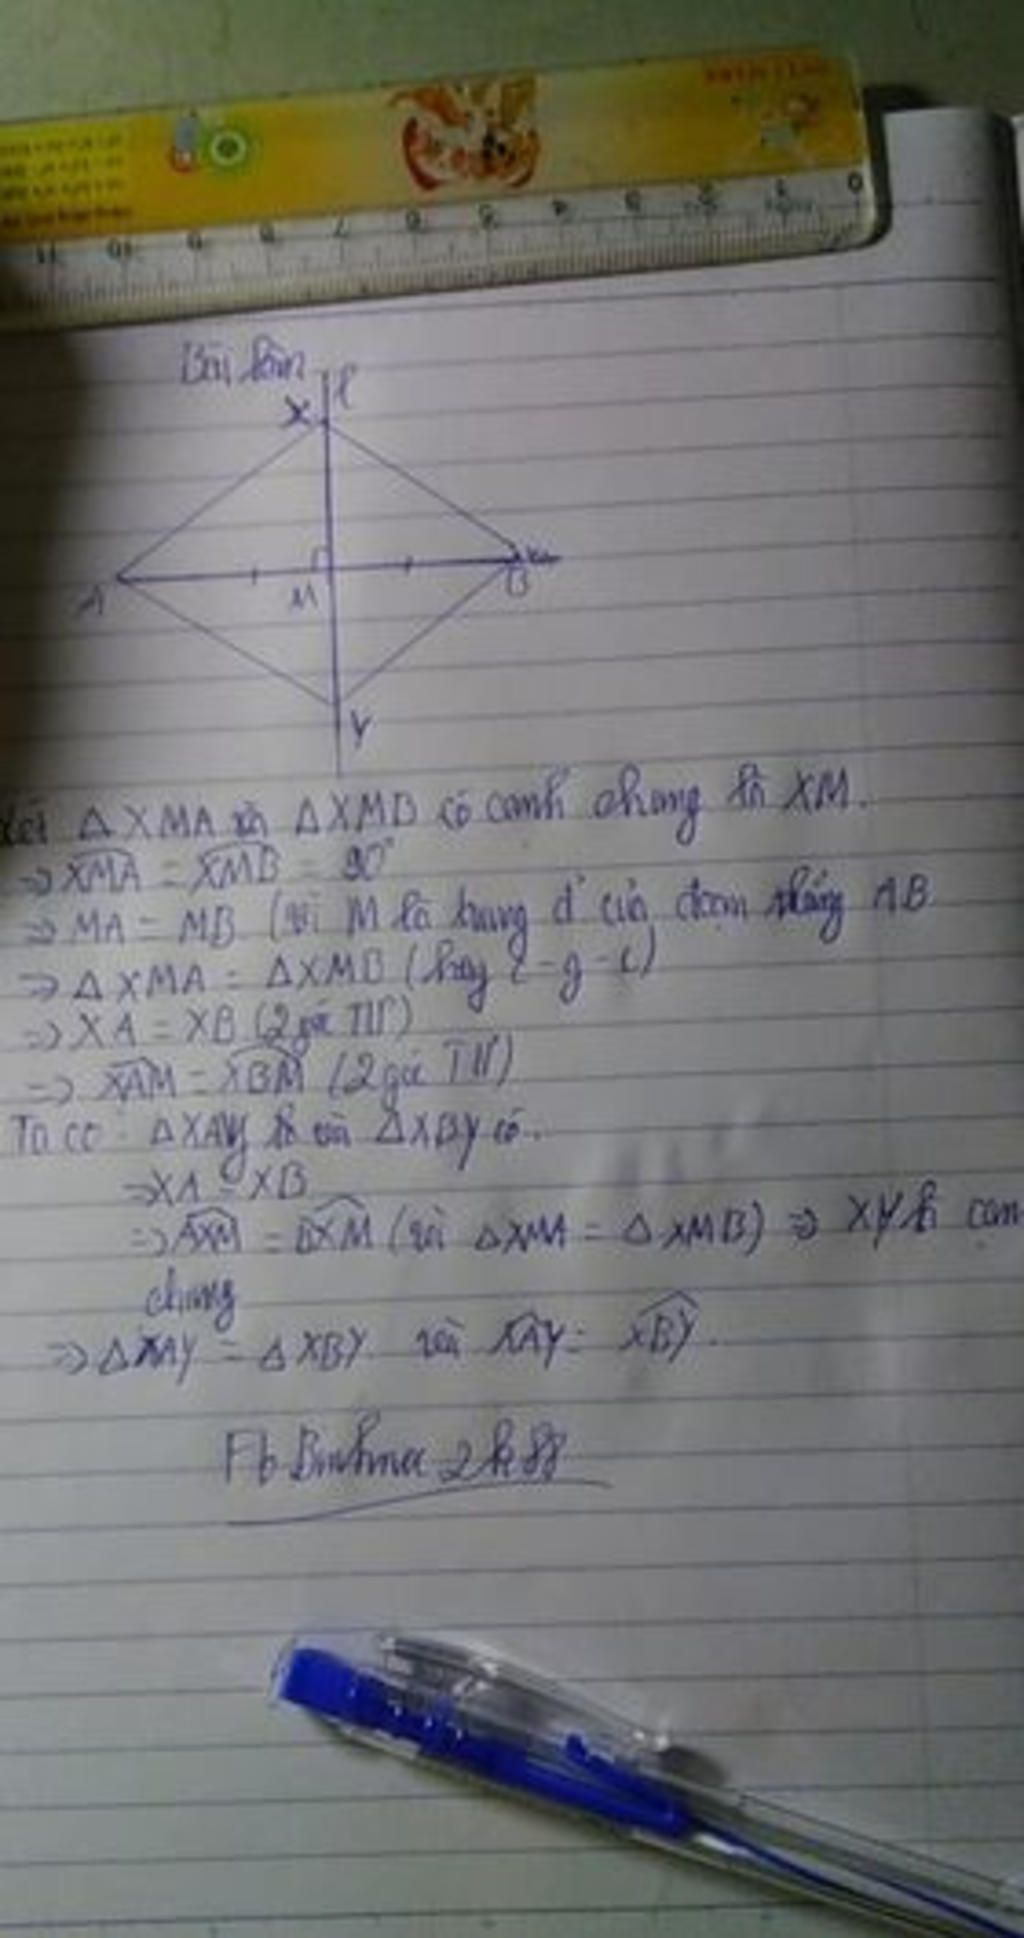 Bài làm
X
l
A
M
B
Y
Xét △XMA và △XMB có cạnh chung là XM.
⇒ XMA = XMB = 90°
⇒ MA = MB (vì M là trung đ' của đoạn thẳng AB
⇒ △XMA = △XMB (hay c-g-c)
⇒ XA = XB (2 góc TƯ)
⇒ XAM = XBM (2 góc TƯ)
Ta có △XAY và △XBY có.
⇒ XA = XB
⇒ AXM = BXM (vì △XMA = △XMB) ⇒ XY là cạn
chung
⇒ △XAY = △XBY và XAY = XBY.
Fb
0 2 3 4 5 6 7 8 9 10 11